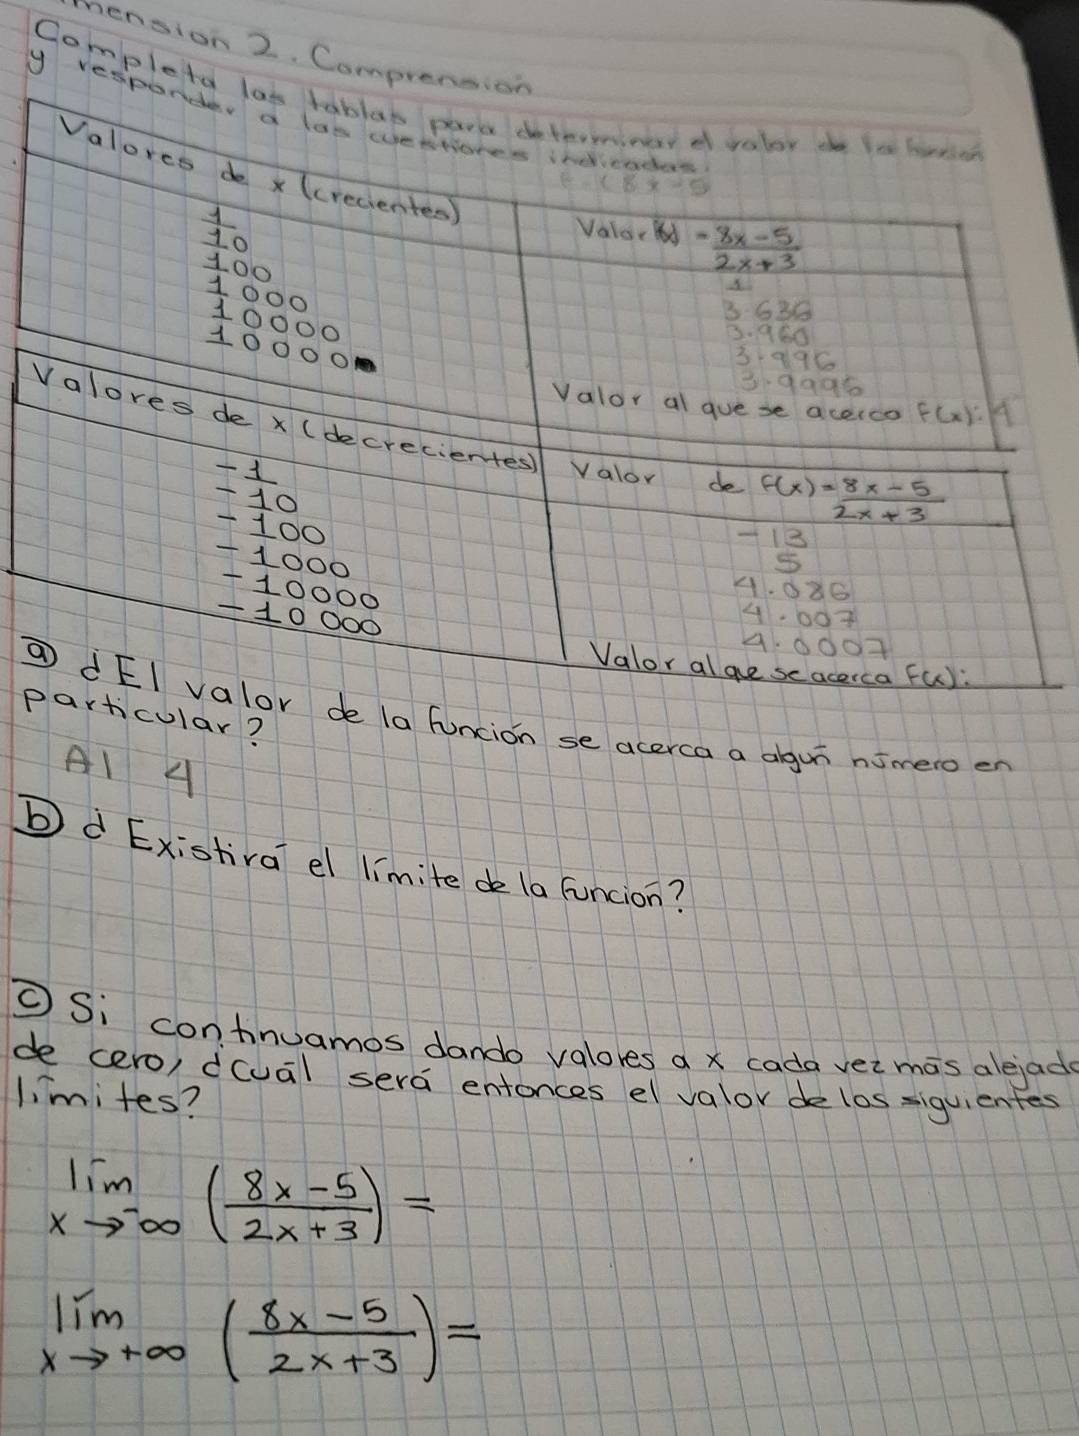 mension 2. Comprension
Completa las tablas para determinar el valor de la función
y responder a las cuestiones indicadas.
Valores de x (crecientes)
Valor f(x) = 8x-5 / 2x+3
1
10
100
1000
10000
10000
1
3.636
3.960
3.996
3.9996
Valor al que se acerco f(x): 4
Valores de x (decrecientes)
Valor de f(x) = 8x-5 / 2x+3
-1
-10
-100
-1000
-10000
-10 000
-13
5
4.086
4.007
4.0007
Valor al que se acerca f(x):
a) ¿El valor de la función se acerca a algún número en
particular?
Al 4
b) ¿Existirá el límite de la función?
c) Si continuamos dando valores a x cada vez más alejado
de cero, ¿cuál será entonces el valor de los siguientes
límites?
lím x→-∞ (8x-5 / 2x+3) =
lím x→+∞ (8x-5 / 2x+3) =